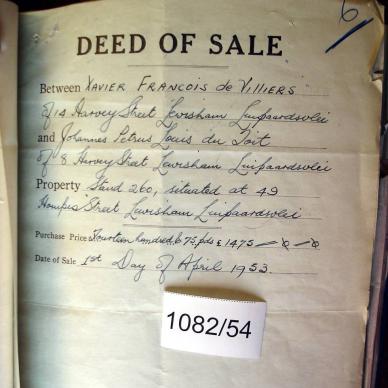 6
DEED OF SALE
Between XAVIER FRANCOIS de VILLIERS
of 14 Harvey Street Lewisham Luipaardsvlei
and Johannes Petrus Louis du Toit
of 8 Harvey Street Lewisham Luipaardsvlei
Property Stand 260, situated at 49
Street Lewisham Luipaardsvlei
Purchase Price Fourteen hundred & 75 pds £ 1475 - 0 - 0
Date of Sale 1st Day of April 1953.
1082/54